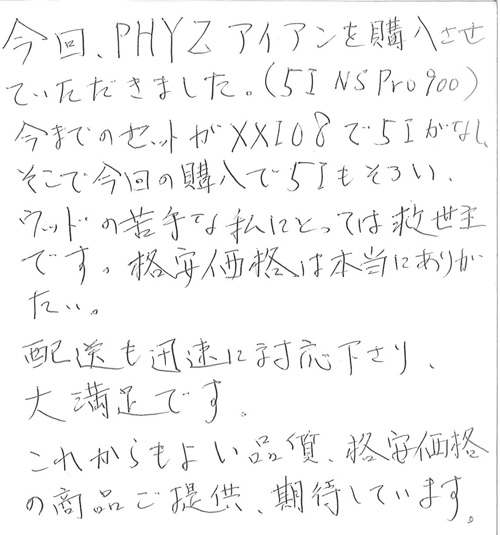 今回、PHYZ アイアンを購入させ
ていただきました。（5I NS Pro 900）
今までのセットがXXIO8で5Iがなし、
そこで今回の購入で5Iもそろい、
ウッドの苦手な私にとっては救世主
です。格安価格は本当にありが
たい。
配送も迅速に対応下さり、
大満足です。
これからもよい品質、格安価格
の商品ご提供、期待しています。